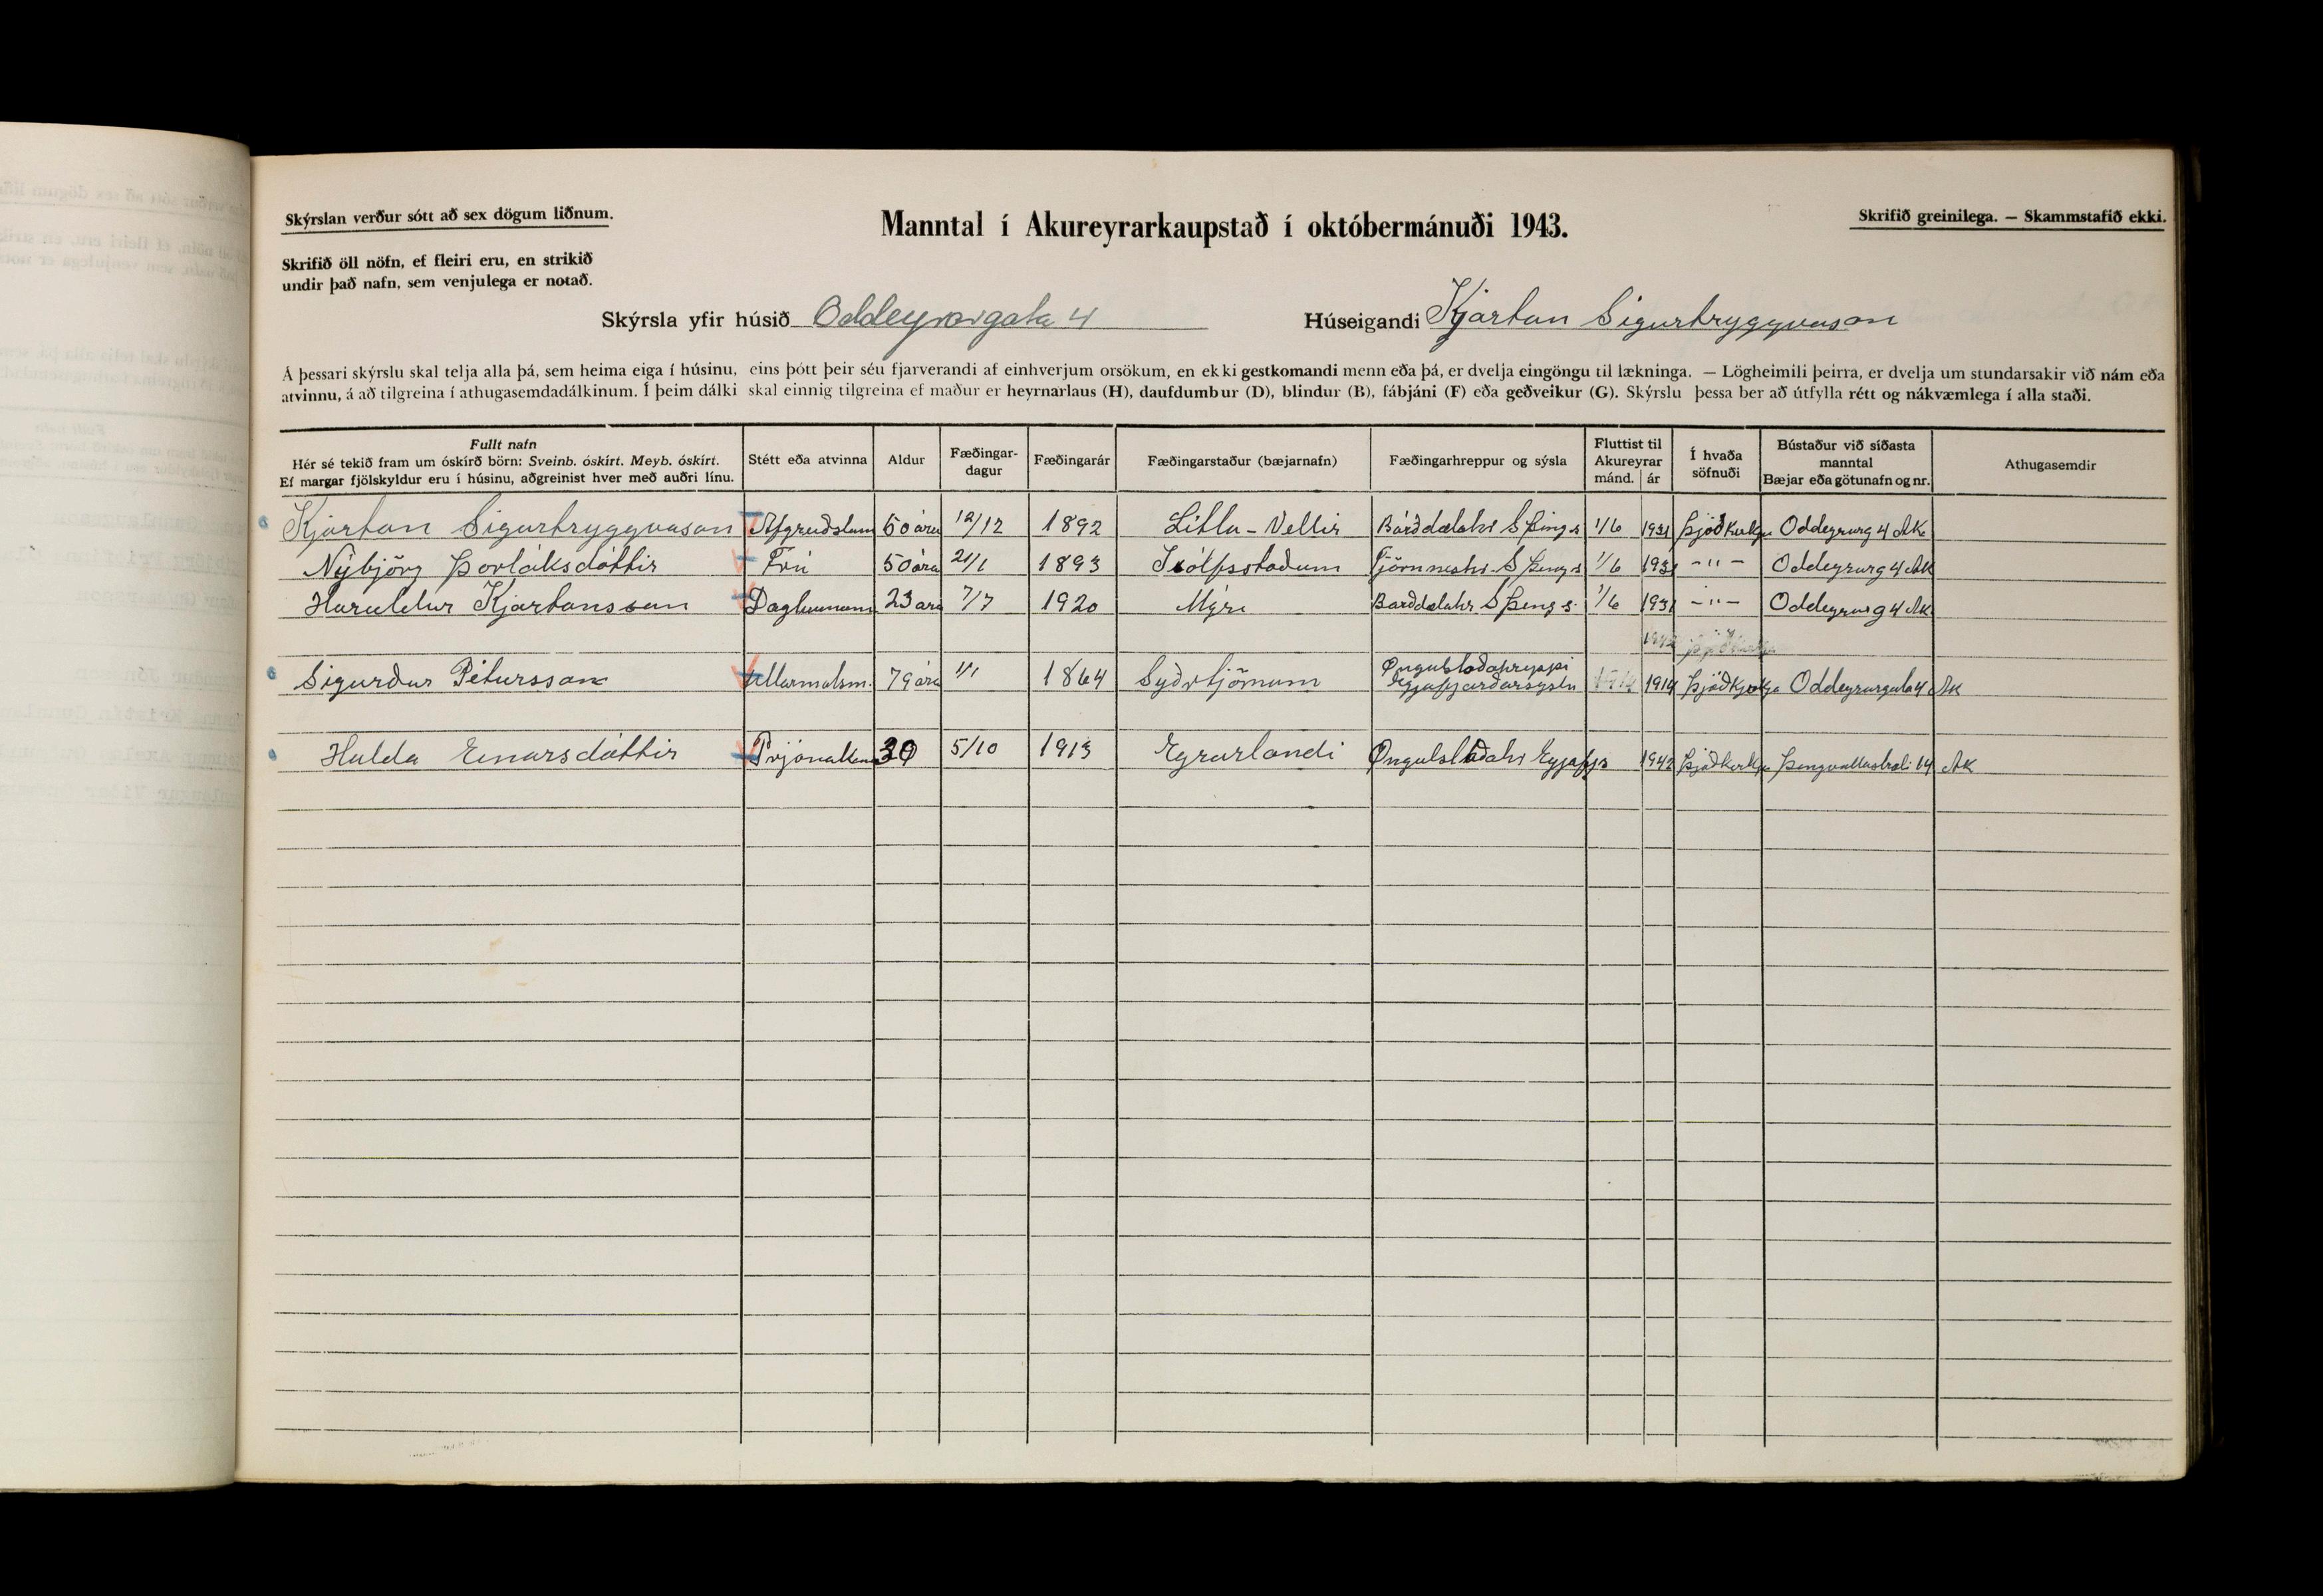 Skýrslan verður sótt að sex dögum liðnum.
Manntal í Akureyrarkaupstað í októbermánuði 1943.
Skrifið greinilega. — Skammstafið ekki.
Skrifið öll nöfn, ef fleiri eru, en strikið
undir það nafn, sem venjulega er notað.
Skýrsla yfir húsið Oddeyrargata 4 Húseigandi Kjartan Sigurtryggvason
Á þessari skýrslu skal telja alla þá, sem heima eiga í húsinu, eins þótt þeir séu fjarverandi af einhverjum orsökum, en ekki gestkomandi menn eða þá, er dvelja eingöngu til lækninga. — Lögheimili þeirra, er dvelja um stundarsakir við nám eða
atvinnu, á að tilgreina í athugasemdadálkinum. Í þeim dálki skal einnig tilgreina ef maður er heyrnarlaus (H), daufdumbur (D), blindur (B), fábjáni (F) eða geðveikur (G). Skýrslu þessa ber að útfylla rétt og nákvæmlega í alla staði.
Fullt nafn
Hér sé tekið fram um óskírð börn: Sveinb. óskírt. Meyb. óskírt.
Ef margar fjölskyldur eru í húsinu, aðgreinist hver með auðri línu.
Stétt eða atvinna
Aldur
Fæðingar-
dagur
Fæðingarár
Fæðingarstaður (bæjarnafn)
Fæðingarhreppur og sýsla
Fluttist til
Akureyrar
mánd. ár
Í hvaða
söfnuði
Bústaður við síðasta
manntal
Bæjar eða götunafn og nr.
Athugasemdir
Kjartan Sigurtryggvason 50 ára 12/12 1892 Litlu-Vellir Bárðdælahr S Þing s 1/6 1931 Þjóðkirkju Oddeyrarg 4 Ak
Nýbjörg Þorláksdóttir Frú 50 ára 21/1 1893 Ísólfsstaðum Tjörnneshr. S Þing s 1/6 1931 -"- Oddeyrarg 4 Ak
Haraldur Kjartansson 23 ára 7/7 1920 Mýri Barðdælahr S Þing s. 1/6 1931 -"- Oddeyrarg 4 Ak
Sigurður Pétursson Ullarmatsm. 79 ára 1/1 1864 Syðrtjörnum Öngulstaðahreppi
Eyjafjarðarsýslu 1914 Þjóðkirkja Oddeyrargata 4 Ak
Hulda Einarsdóttir Prjónakona 30 5/10 1913 Eyrarlandi Öngulstaðahr Eyjafjs 1942 Þjóðkirkju Þingvallastræti 14 Ak